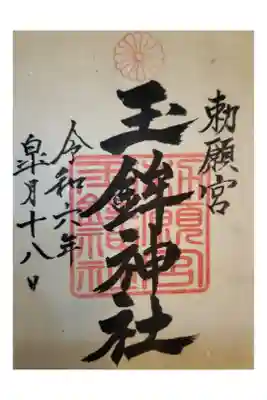 勅願宮
玉鉾神社
令和六年
皐月十八日